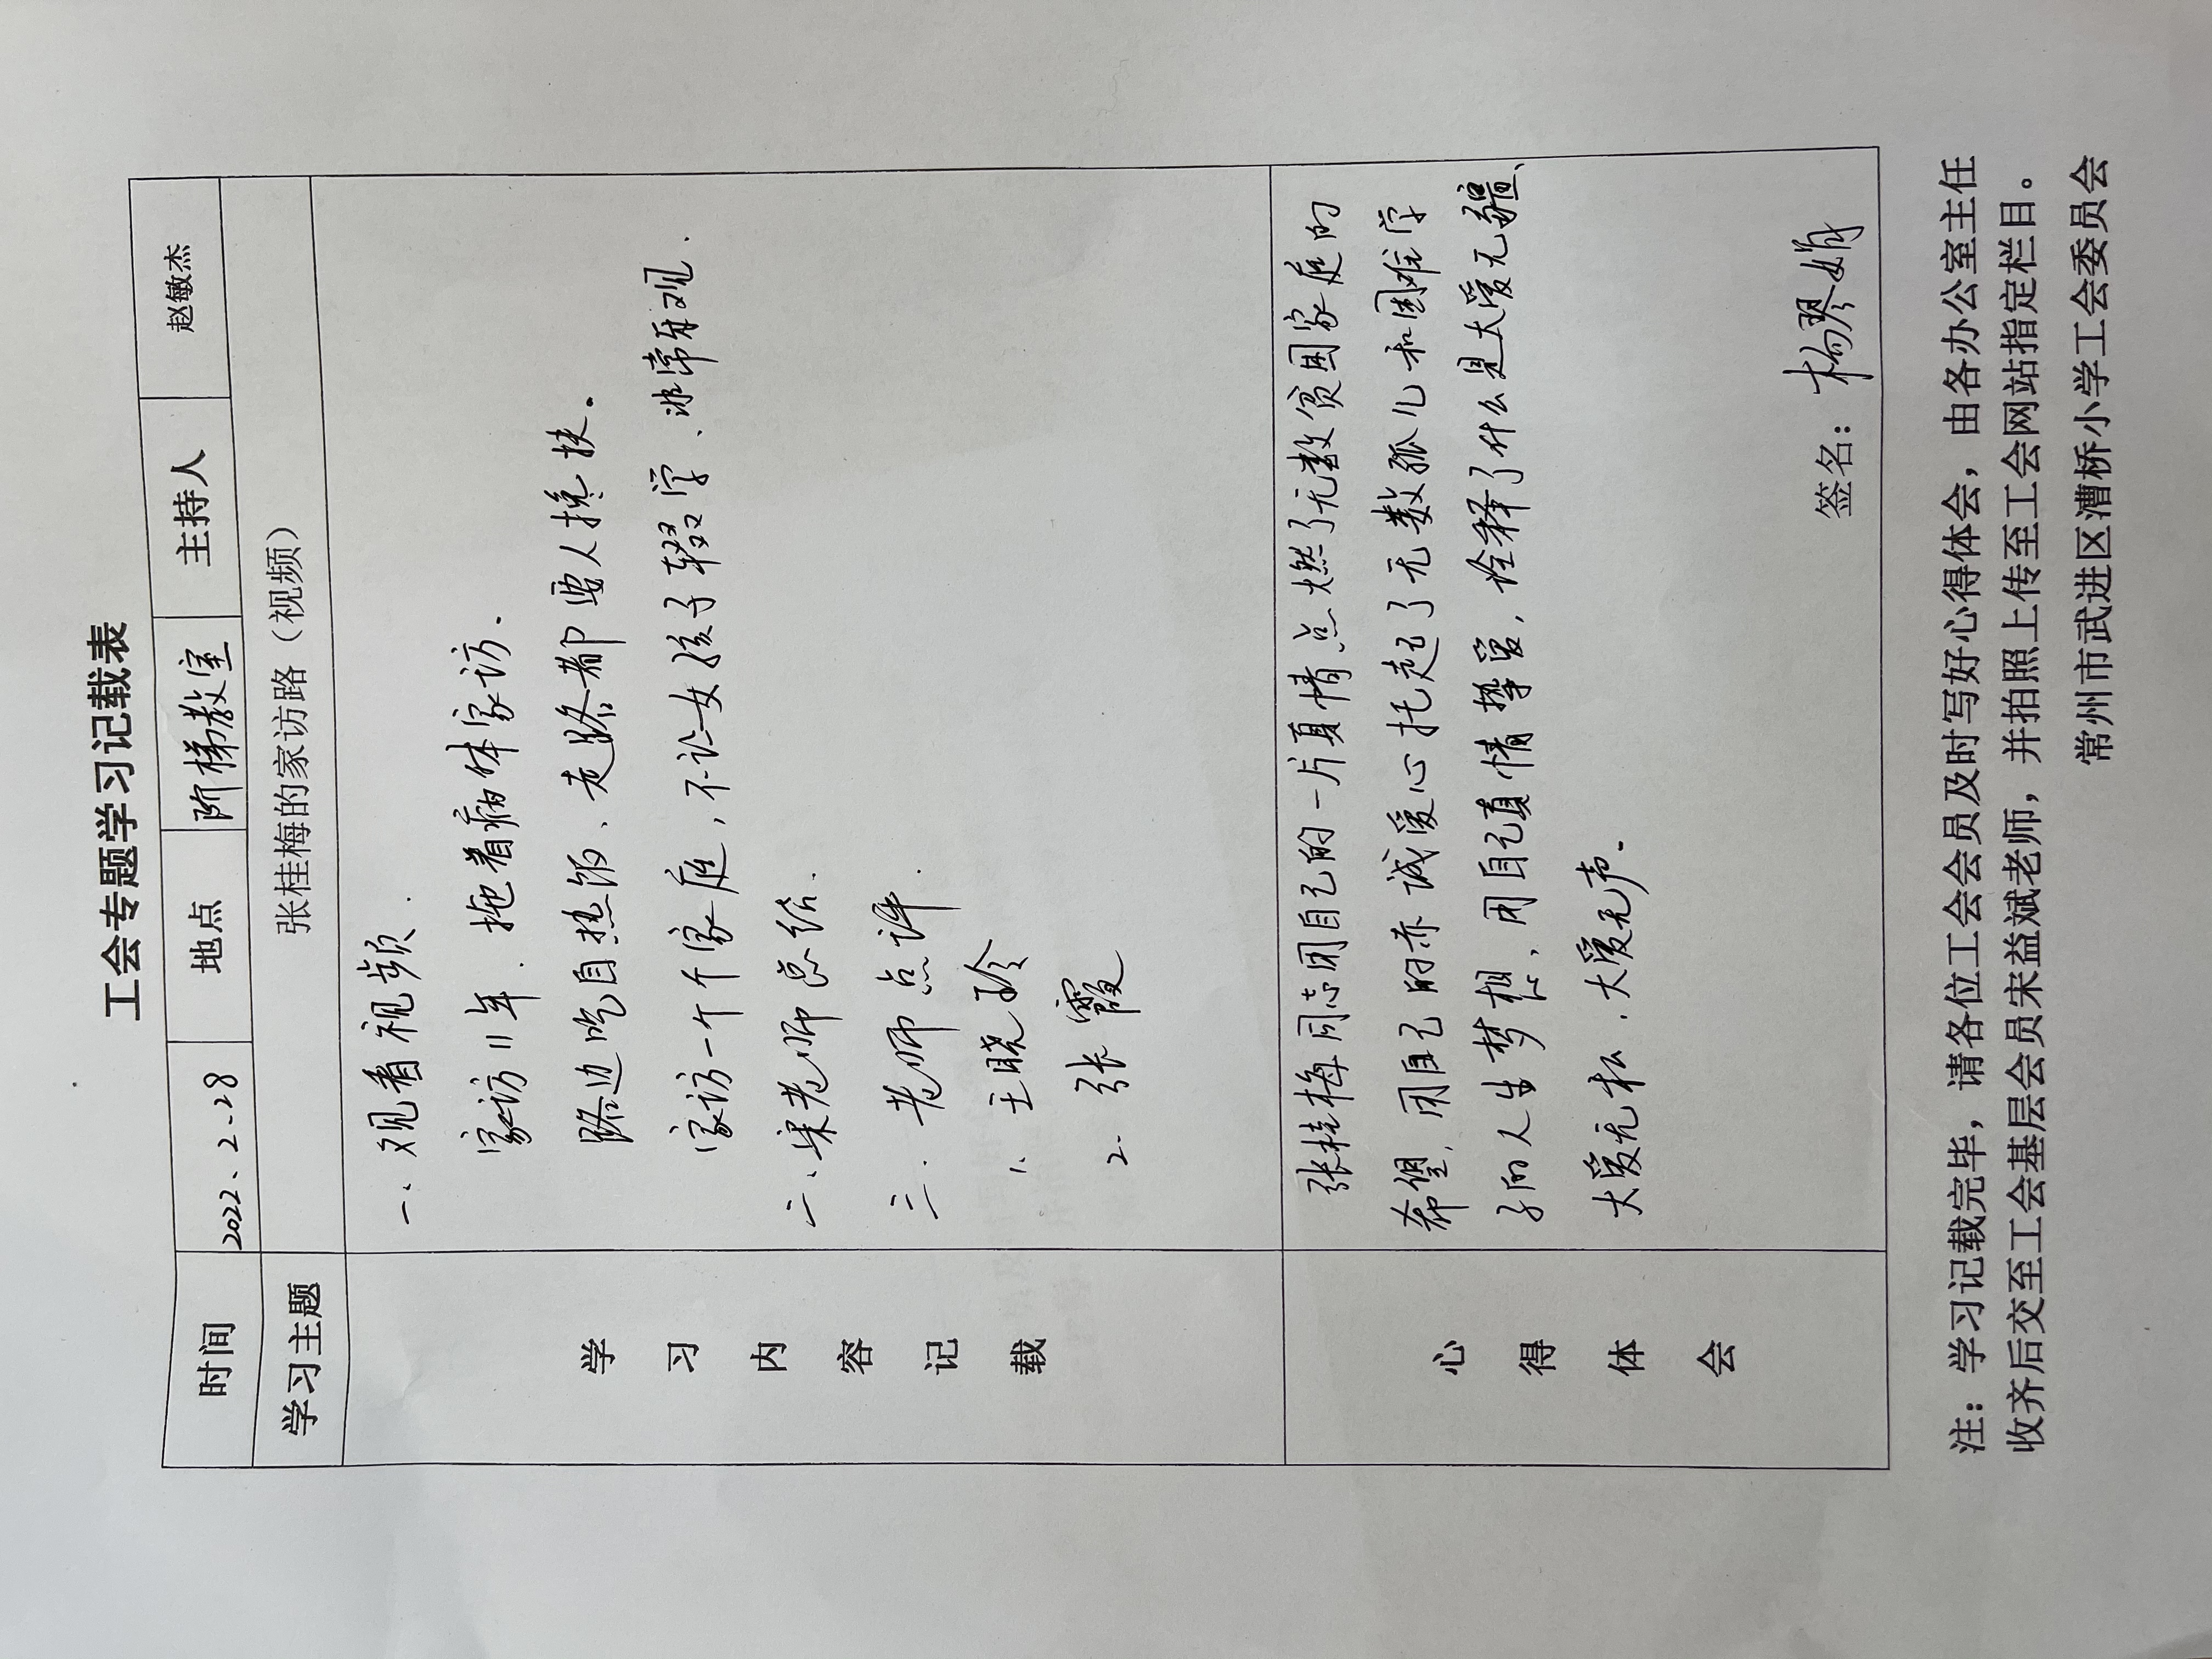 工会专题学习记载表
时间 2022、2-28 地点 阶梯教室 主持人 赵敏杰
学习主题 张桂梅的家访路（视频）
学习内容记载
一、观看视频.
家访11年.拖着病体家访.
路边吃自热饭、走路都要人搀扶.
家访一个个家庭，不让女孩子辍学、非常
二、梁老师总结.
三.老师点评.
1、王晓玲
2.张霞
心得体会
张桂梅同志用自己的一片真情点燃了无数贫困家庭的
希望，用自己的赤诚爱心托起了无数孤儿和困难学
子的人生梦想，用自己真情挚爱，诠释了什么是大爱无疆、
大爱无私、大爱无声.
签名：杨琴娟
注：学习记载完毕，请各位工会会员及时写好心得体会，由各办公室主任
收齐后交至工会基层会员宋益斌老师，并拍照上传至工会网站指定栏目。
常州市武进区漕桥小学工会委员会